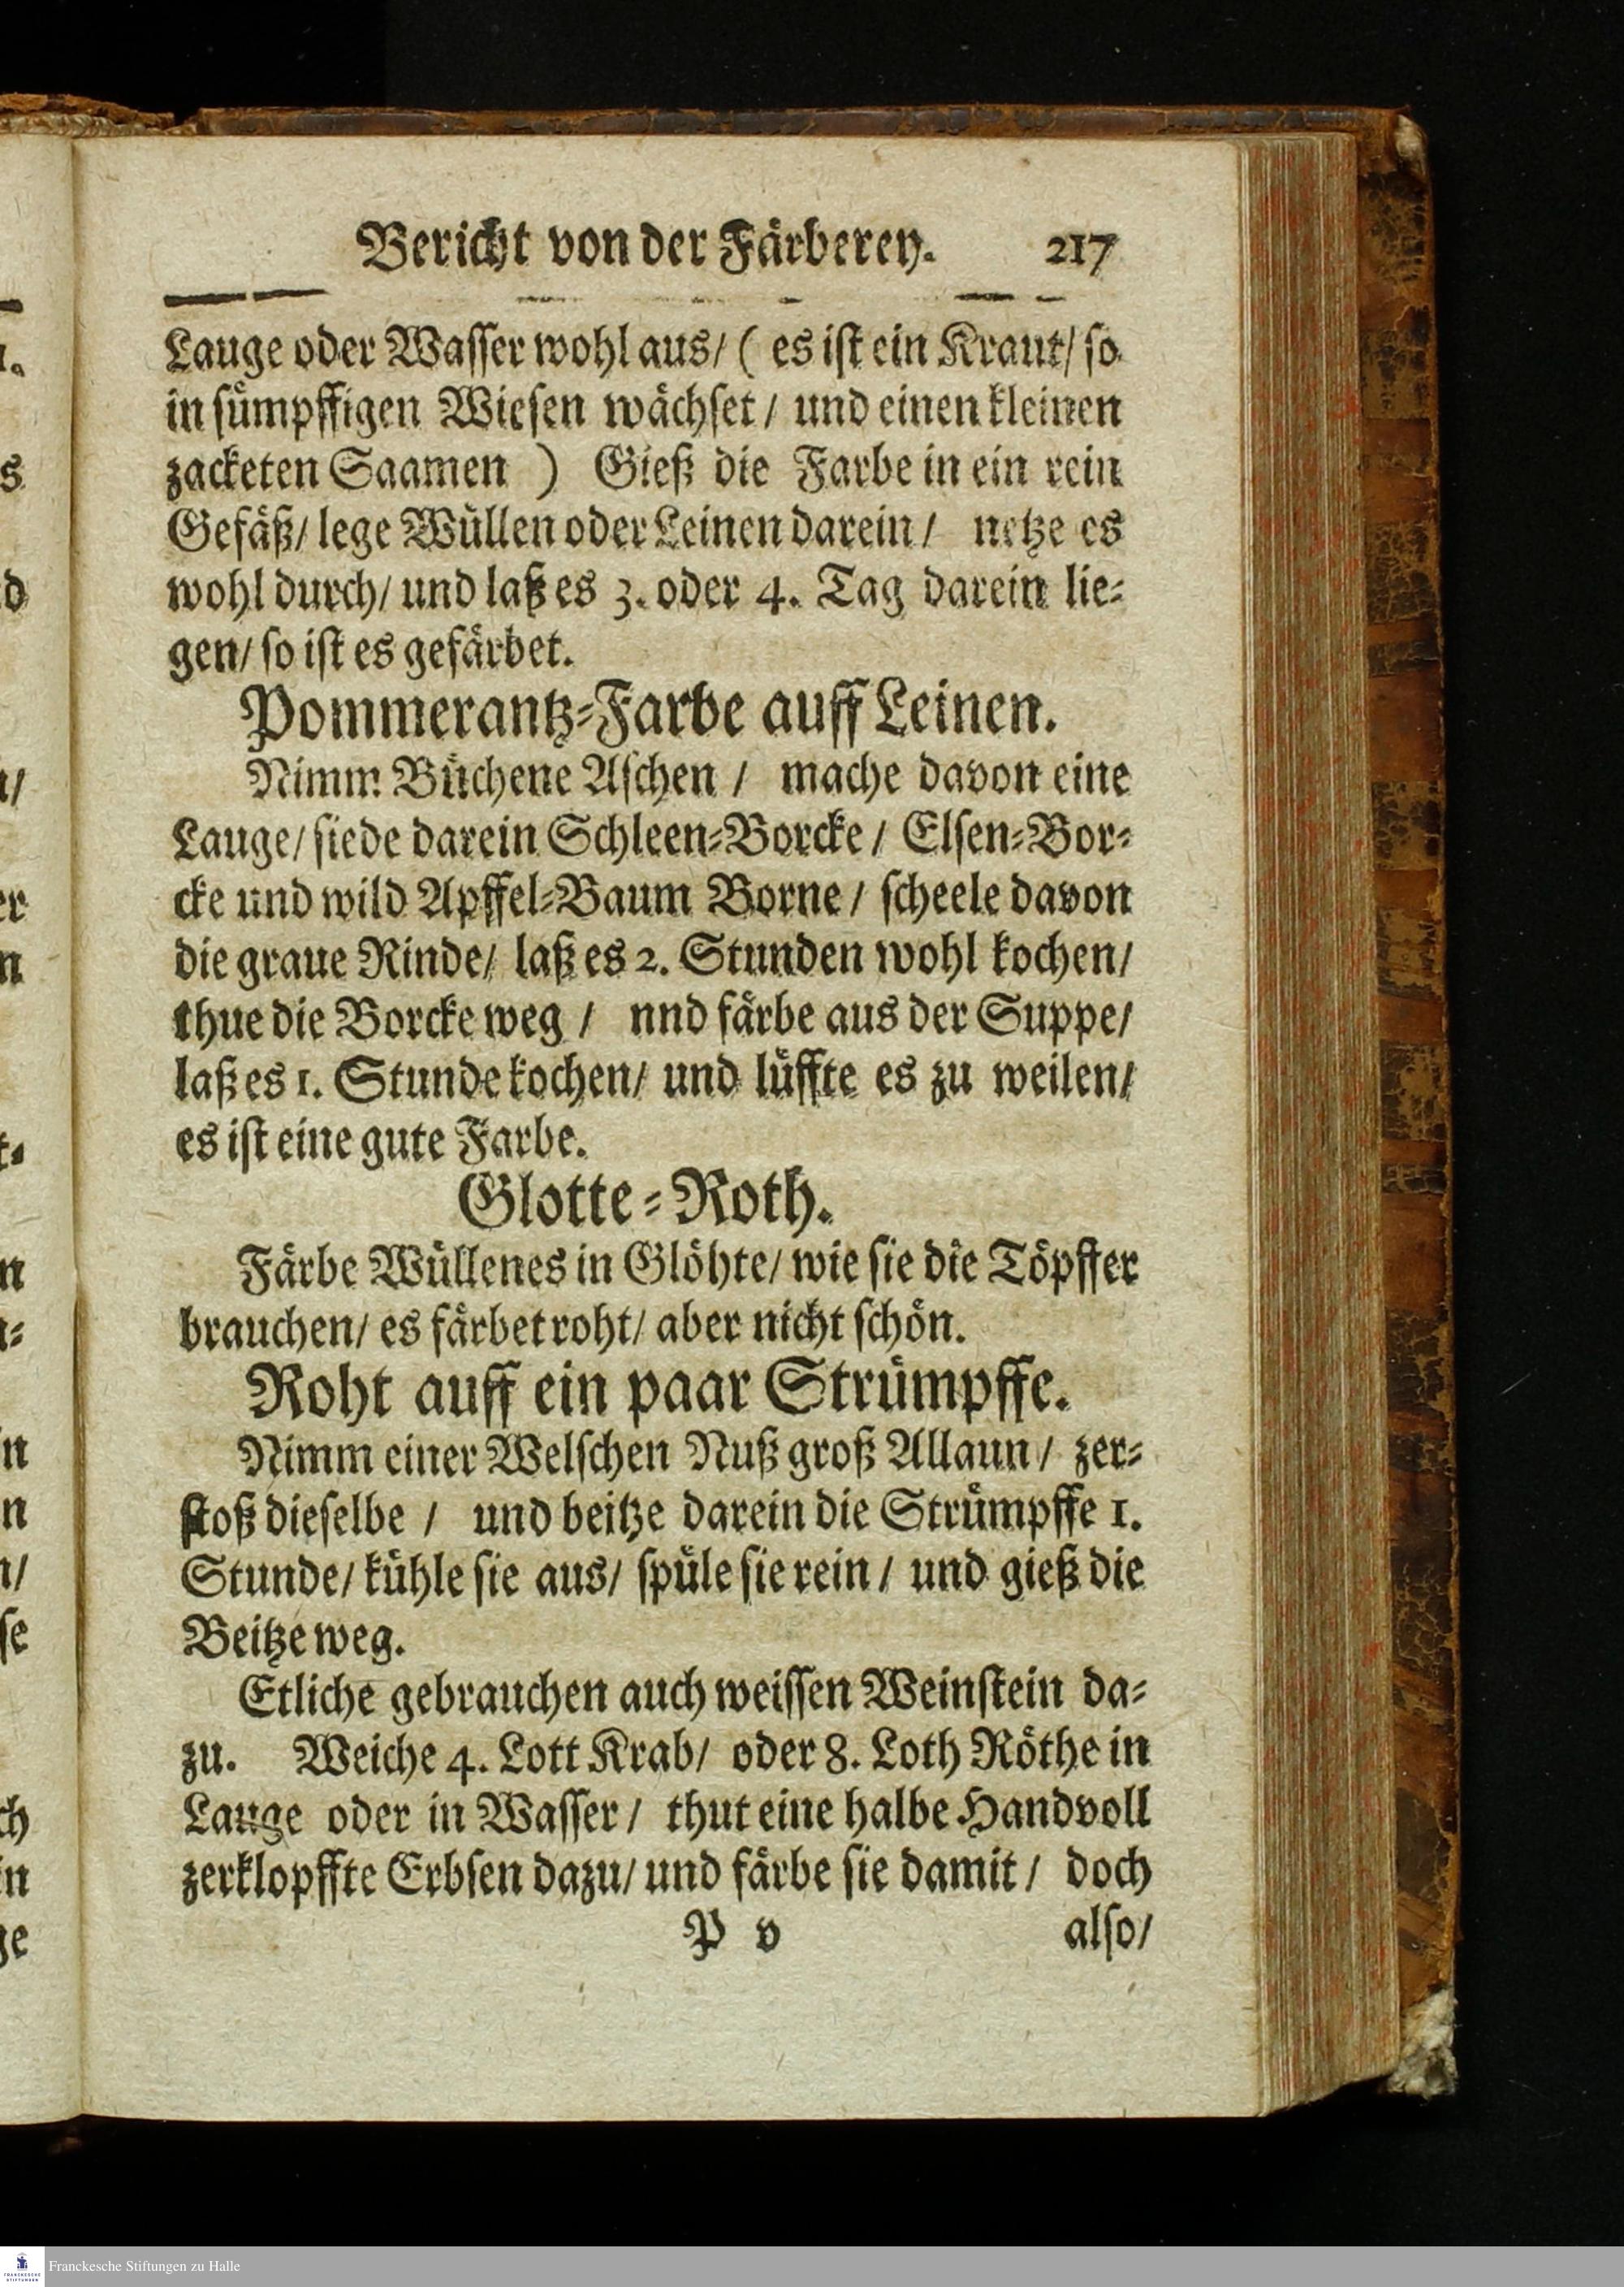 Bericht von der Färberey. 217
Lauge oder Wasser wohl aus/ ( es ist ein Kraut/ so
in sümpffigen Wiesen wächset / und einen kleinen
zacketen Saamen ) Gieß die Farbe in ein rein
Gefäß/ lege Wüllen oder Leinen darein / netze es
wohl durch/ und laß es 3. oder 4. Tag darein lie-
gen/ so ist es gefärbet.
Pommerantz-Farbe auff Leinen.
Nimm Büchene Aschen / mache davon eine
Lauge/ siede darein Schleen-Borcke / Elsen-Bor-
cke und wild Apffel-Baum Borne / scheele davon
die graue Rinde/ laß es 2. Stunden wohl kochen/
thue die Borcke weg / nnd färbe aus der Suppe/
laß es 1. Stunde kochen/ und lüffte es zu weilen/
es ist eine gute Farbe.
Glotte-Roth.
Färbe Wüllenes in Glöhte/ wie sie die Töpffer
brauchen/ es färbet roht/ aber nicht schön.
Roht auff ein paar Strümpffe.
Nimm einer Welschen Nuß groß Allaun / zer-
stoß dieselbe / und beitze darein die Strümpffe 1.
Stunde/ kühle sie aus/ spüle sie rein / und gieß die
Beitze weg.
Etliche gebrauchen auch weissen Weinstein da-
zu. Weiche 4. Lott Krab/ oder 8. Loth Röthe in
Lauge oder in Wasser / thut eine halbe Handvoll
zerklopffte Erbsen dazu/ und färbe sie damit / doch
P v also/
Franckesche Stiftungen zu Halle
FRANCKESCHE
STIFTUNGEN